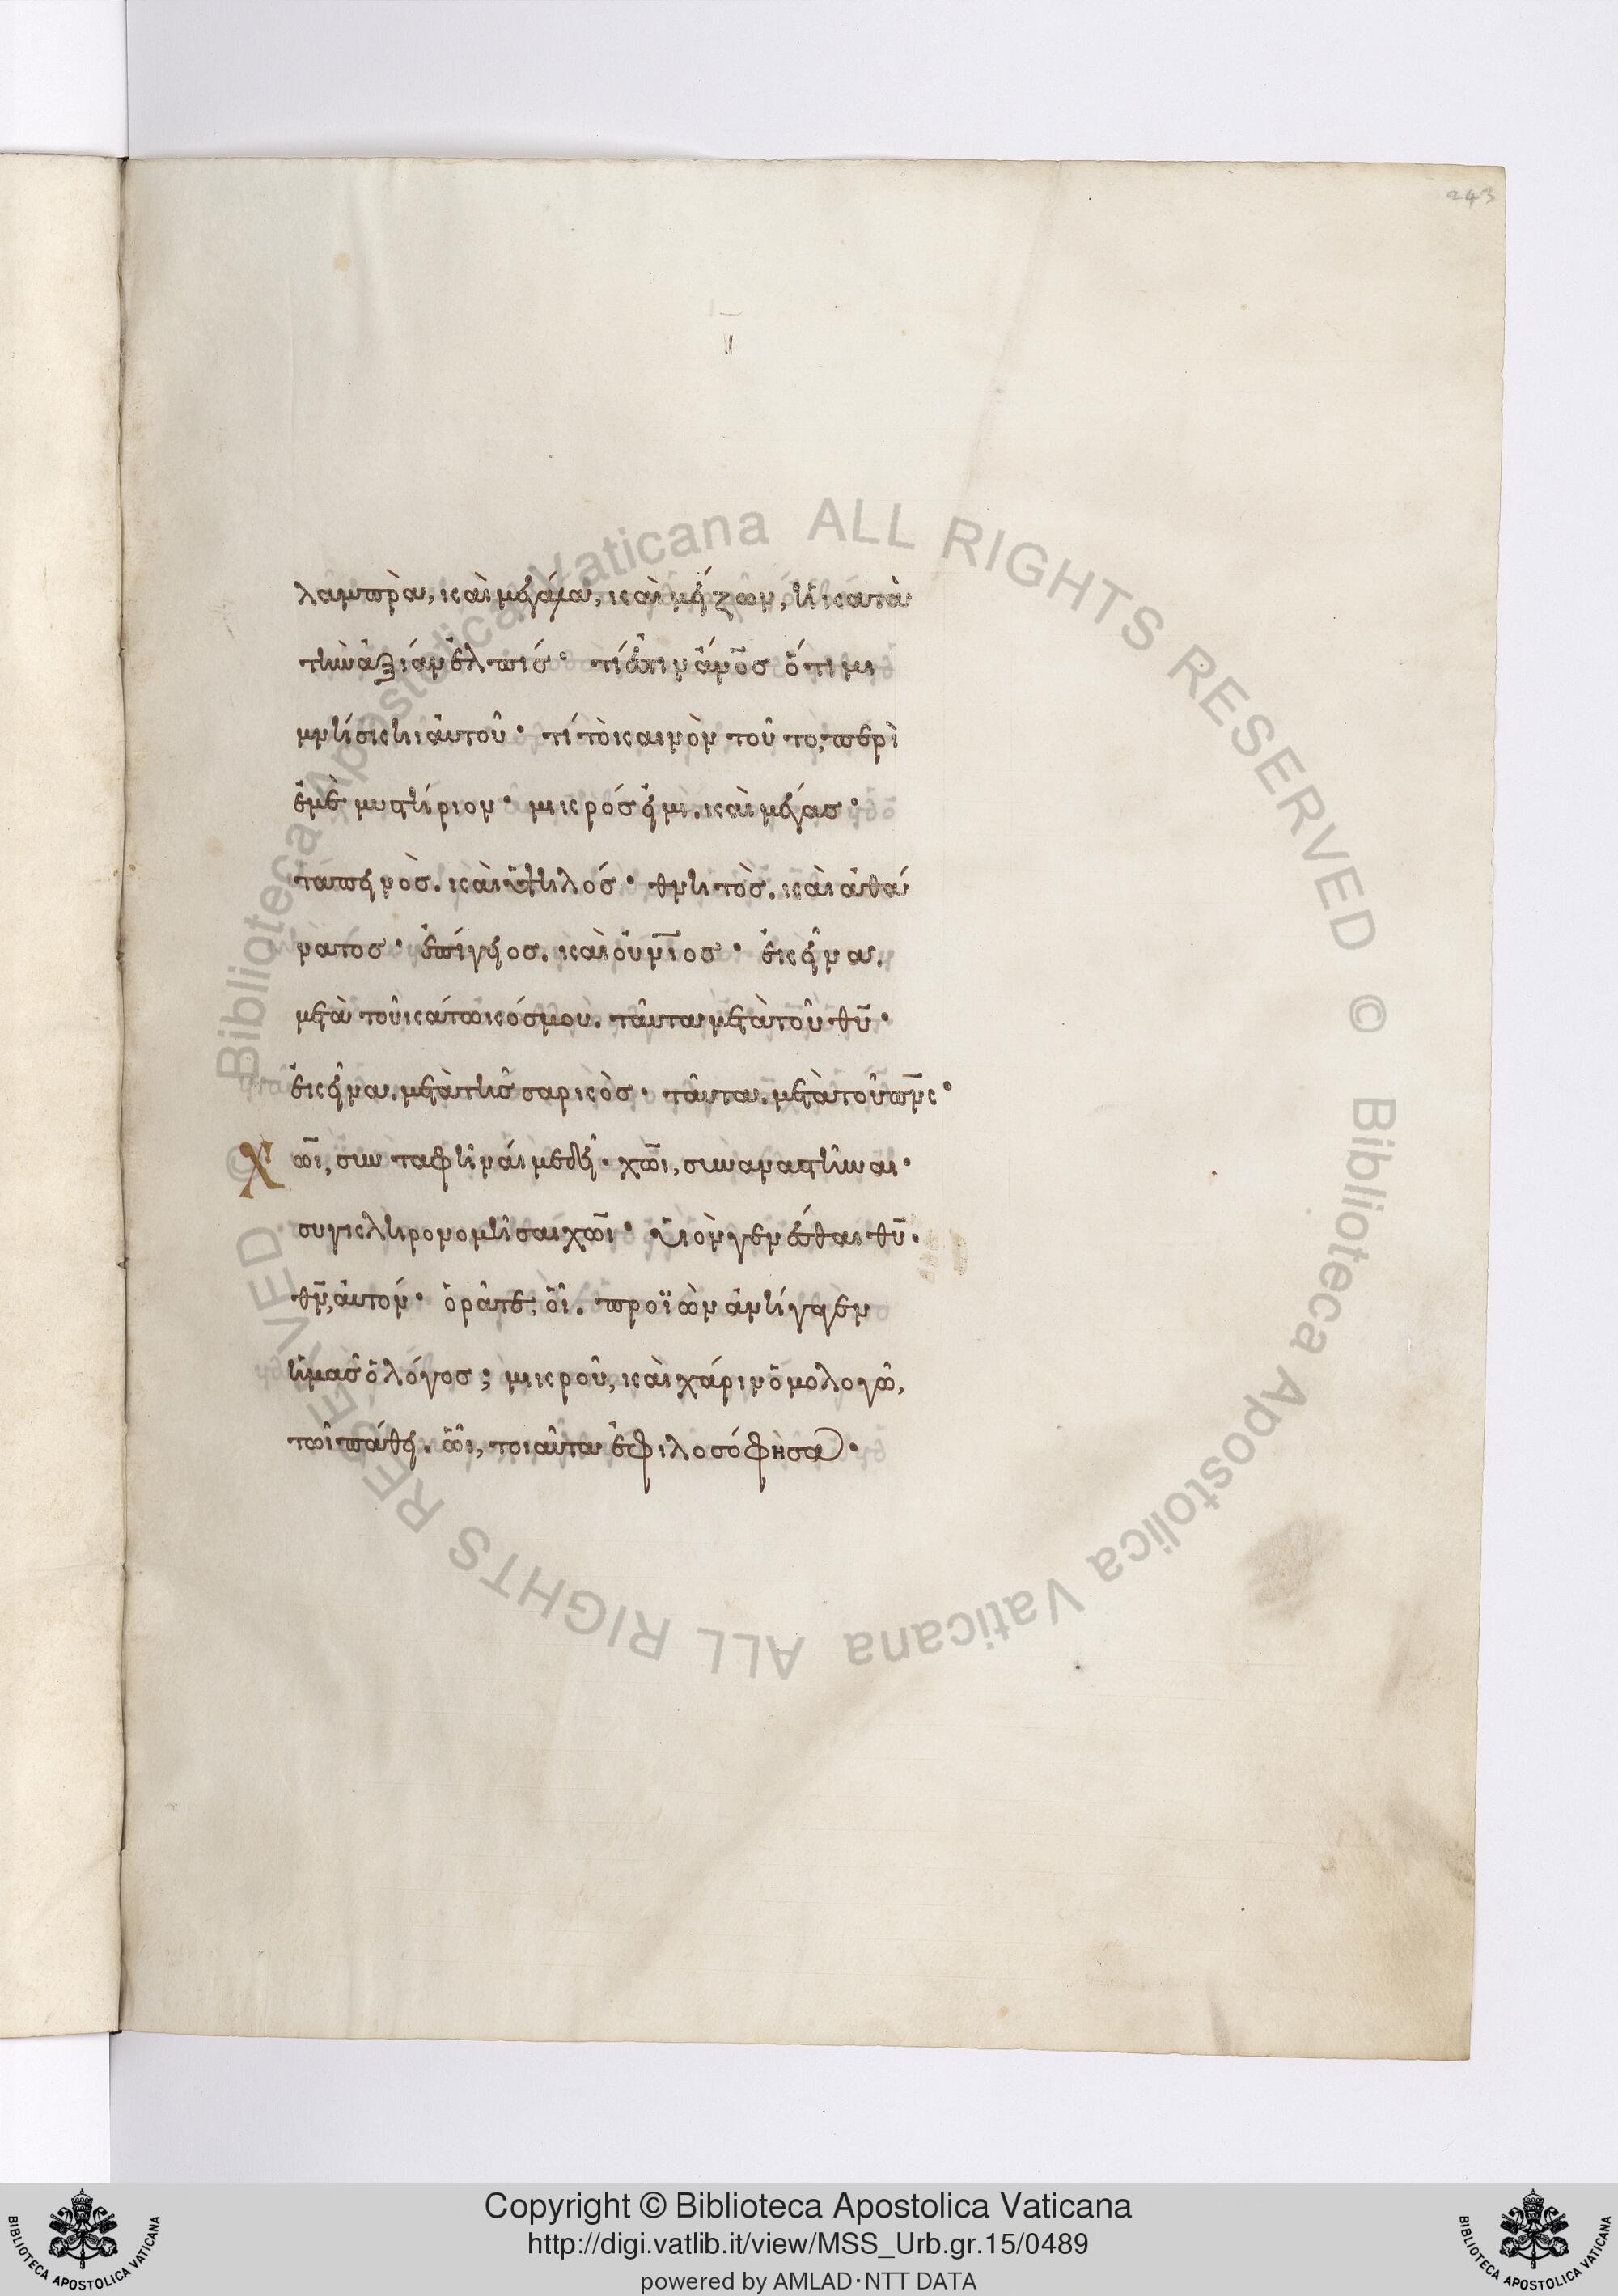 243
λαμπρὰ, καὶ μεγάλα, καὶ μείζων, ἢ κατὰ
τὴν ἀξίαν ἐλπίς· τί ἐστιν ἄν̅ο̅ς ὅτι μι
μνήσκηι ἀυτοῦ· τί τὸ καινὸν τοῦτο, περὶ
ἐμὲ μυστήριον· μικρός εἰμι. καὶ μέγας·
ταπεινὸς. καὶ ὑψηλός· θνητὸς. καὶ ἀθά
νατος· ἐπίγειος. καὶ οὐν̅ιος· ἐκεῖνα.
μετὰ τοῦ κάτω κόσμου. ταῦτα μετὰ τοῦ θ̅υ̅·
ἐκεῖνα. μετὰ τῆς σαρκὸς. ταῦτα. μετὰ τοῦ π̅ν̅ς·
Χω̅ι, συνταφῆναί με δεῖ· χω̅ι, συναναστῆναι·
συγκληρονομῆσαι χω̅ι· υἱὸν γενέσθαι θ̅υ̅.
θ̅ν̅, ἀυτόν· ὁρᾶτε, οἷ. προϊὼν ἀνήγαγεν
ἡμᾶς ὁ λόγος; μικροῦ, καὶ χάριν ὁμολογῶ,
τῶι πάθει. ὧι, τοιαῦτα ἐφιλοσόφησα·
© Biblioteca Apostolica Vaticana ALL RIGHTS RESERVED © Biblioteca Apostolica Vaticana ALL RIGHTS RESERVED
Copyright © Biblioteca Apostolica Vaticana
http://digi.vatlib.it/view/MSS_Urb.gr.15/0489
powered by AMLAD·NTT DATA
BIBLIOTECA APOSTOLICA VATICANA
BIBLIOTECA APOSTOLICA VATICANA